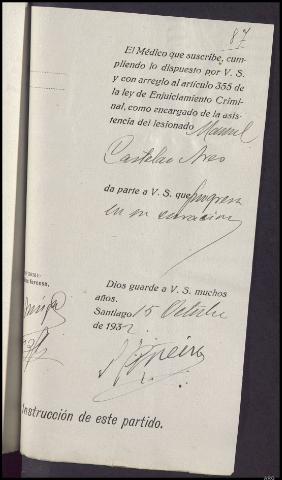 87
El Médico que suscribe, cum-
pliendo lo dispuesto por V. S.
y con arreglo al artículo 355 de
la ley de Enjuiciamiento Crimi-
nal, como encargado de la asis-
tencia del lesionado Manuel
Castelao Ares
da parte a V. S. que progresa
en su curación
Dios guarde a V. S. muchos
años.
Santiago 15 Octubre
de 1932
Instrucción de este partido.